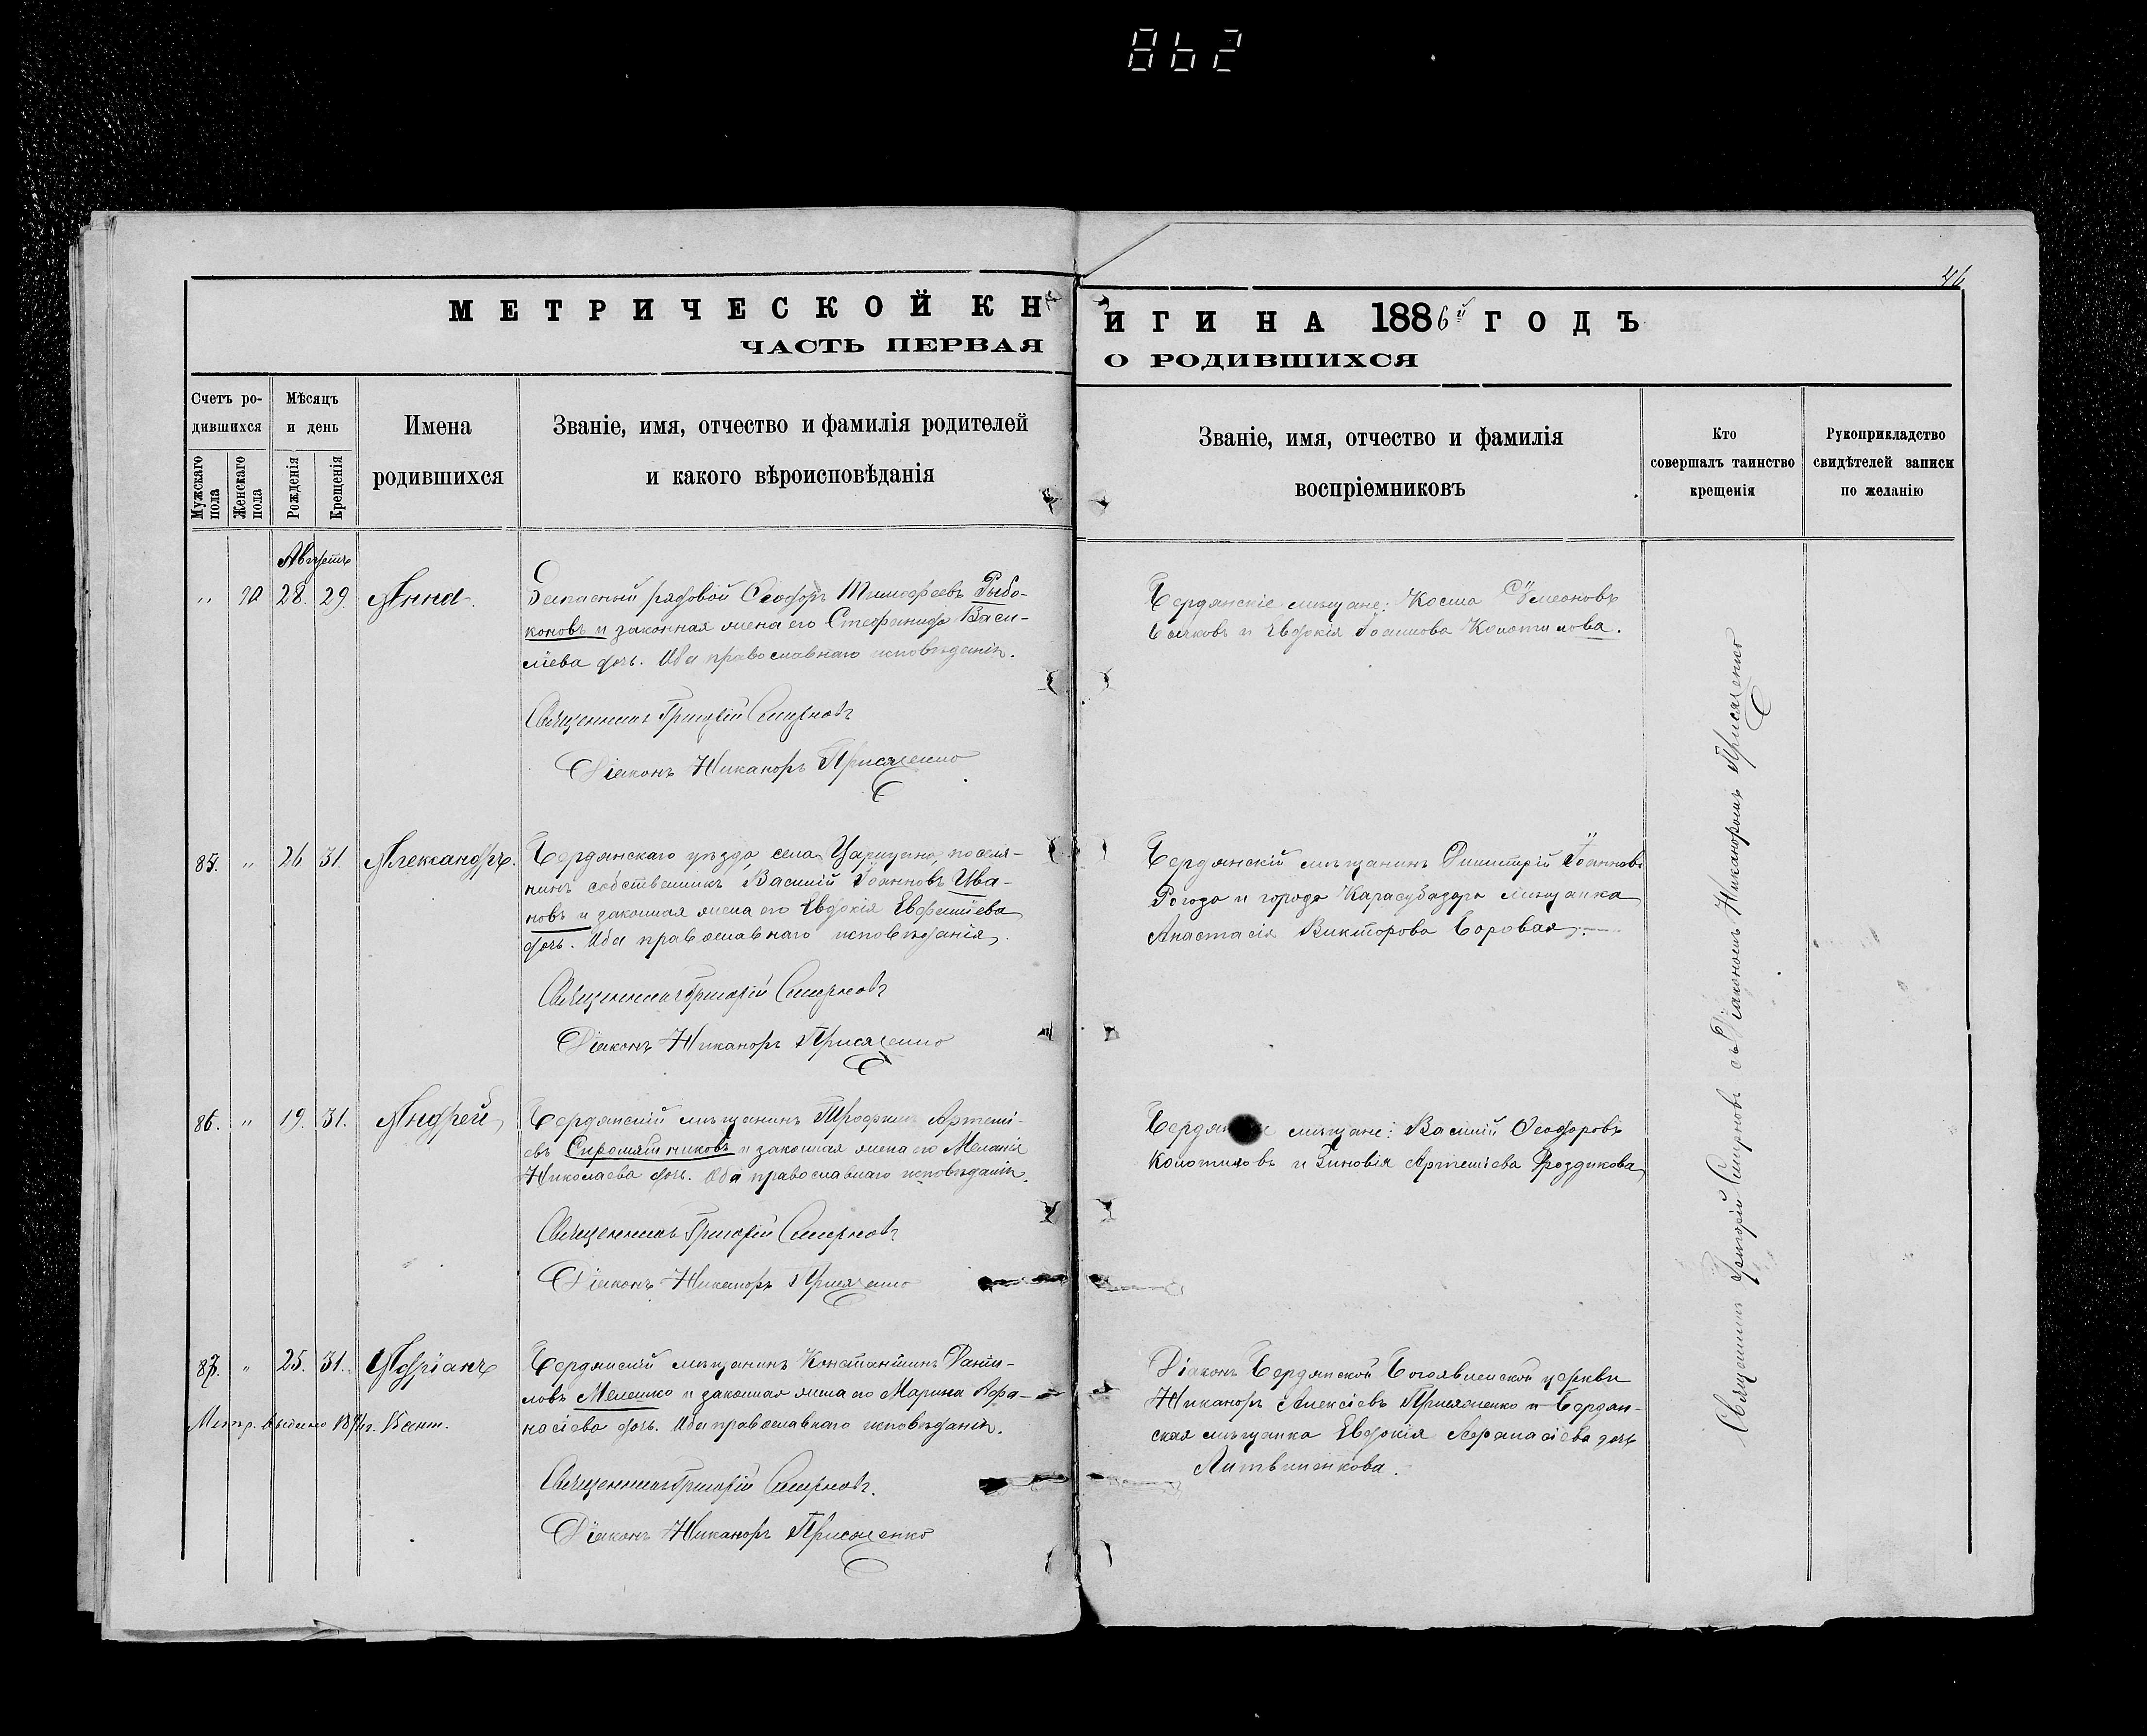 862
46
МЕТРИЧЕСКОЙ КНИГИ НА 1886й ГОДЪ
ЧАСТЬ ПЕРВАЯ О РОДИВШИХСЯ
Счетъ родившихся
Мужскаго пола
Женскаго пола
Мѣсяцъ и день
Рожденія
Крещенія
Имена родившихся
Званіе, имя, отчество и фамилія родителей
и какого вѣроисповѣданія
Званіе, имя, отчество и фамилія
воспріемниковъ
Кто
совершалъ таинство
крещенія
Рукоприкладство
свидѣтелей записи
по желанію
Августъ
" 70 28. 29. Анна.
Запасный рядовой Ѳеодоръ Тимофеевъ Рыбо-
коновъ и законная жена его Стефанида Васи-
лiева дочь. Оба православнаго исповѣданія.
Священникъ Григорій Смирновъ
Діаконъ Никаноръ Присяженко
Бердянскіе мѣщане: Косма Сѵмеоновъ
Бычковъ и Евдокія Іоаннова Колотилова.
85. " 26 31. Александръ.
Бердянскаго уѣзда села Царицыно поселя-
нинъ собственникъ Василій Іоанновъ Ива-
новъ и законная жена его Евдокія Евфиміева
дочь. Оба православнаго исповѣданія.
Священникъ Григорій Смирновъ
Діаконъ Никаноръ Присяженко
Бердянскій мѣщанинъ Димитрій Іоанновъ
Рогоза и города Карасубазара мѣщанка
Анастасія Викторова Боровая.
86. " 19. 31. Андрей
Бердянскій мѣщанинъ Трофимъ Артемі-
евъ Сыромятниковъ и законная жена его Меланія
Николаева дочь. Оба православнаго исповѣданія.
Священникъ Григорій Смирновъ
Діаконъ Никаноръ Присяженко
мѣщане: Василій Ѳеодоровъ
Колотиловъ и Зиновія Артеміева
87. " 25. 31. Адріанъ
Бердянскій мѣщанинъ Константинъ Дани-
ловъ Мелешко и законная жена его Марина Афа-
насіева дочь. Оба православнаго исповѣданія.
Метр. выдано
Священникъ Григорій Смирновъ.
Діаконъ Никаноръ Присяженко
Діаконъ Бердянской Богоявленской церкви
Никаноръ Алексіевъ Присяженко и Бердян-
ская мѣщанка Евдокія Афанасіева дочь
Литвиненкова.
Священникъ Григорій Смирновъ съ Діакономъ Никаноромъ Присяженко